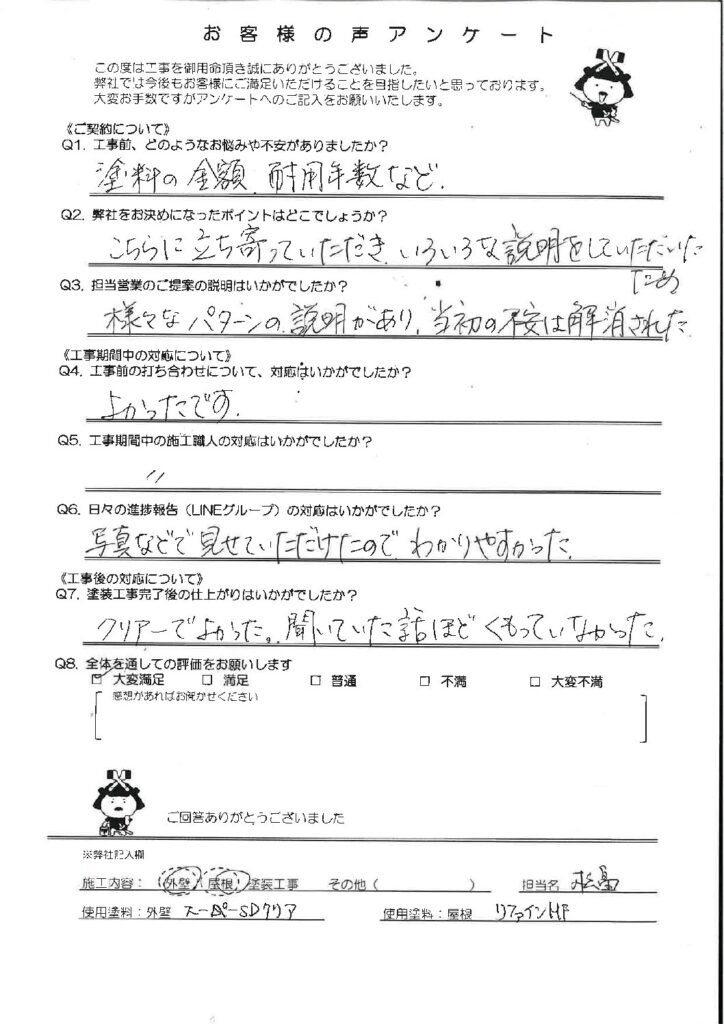 お客様の声アンケート
この度は工事を御用命頂き誠にありがとうございました。
弊社では今後もお客様にご満足いただけることを目指したいと思っております。
大変お手数ですがアンケートへのご記入をお願いいたします。
《ご契約について》
Q1. 工事前、どのようなお悩みや不安がありましたか？
塗料の金額、耐用年数など．
Q2. 弊社をお決めになったポイントはどこでしょうか？
こちらに立ち寄っていただき、いろいろな説明をしていただいた
ため
Q3. 担当営業のご提案の説明はいかがでしたか？
様々なパターンの説明があり、当初の不安は解消された．
《工事期間中の対応について》
Q4. 工事前の打ち合わせについて、対応はいかがでしたか？
よかったです．
Q5. 工事期間中の施工職人の対応はいかがでしたか？
〃
Q6. 日々の進捗報告（LINEグループ）の対応はいかがでしたか？
写真などで見せていただけたので わかりやすかった．
《工事後の対応について》
Q7. 塗装工事完了後の仕上がりはいかがでしたか？
クリアーでよかった。聞いていた話ほど くもっていなかった．
Q8. 全体を通しての評価をお願いします
☑ 大変満足 □ 満足 □ 普通 □ 不満 □ 大変不満
感想があればお聞かせください
ご回答ありがとうございました
※弊社記入欄
施工内容： 外壁 / 屋根 / 塗装工事 その他（ ） 担当名 松島
使用塗料：外壁 スーパーSDクリア 使用塗料：屋根 リファインMF